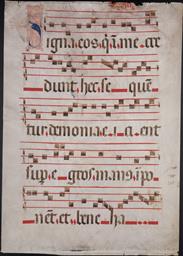 Signa eos q̃ i me cre
dunt hec se quẽ
tur demonia e i ci ent
sup e gros manꝰ ipo
nẽt et bene ha